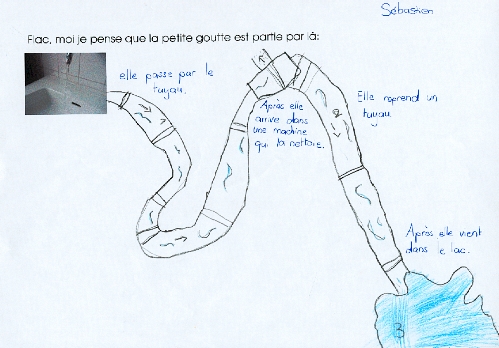 Sébastien
Flac, moi je pense que la petite goutte est partie par là:
elle passe par le
tuyau.
Après elle
arrive dans
une machine
qui la nettoie.
Elle reprend un
tuyau
Après elle vient
dans le lac.